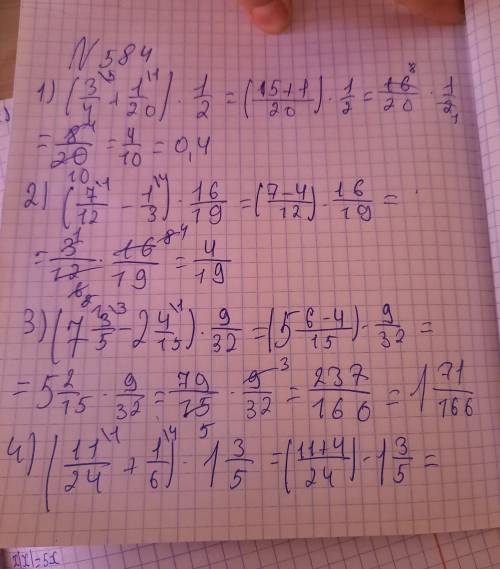 N 584
1) (3/4\5 + 1/20\1) · 1/2 = (15+1/20) · 1/2 = 16 8/20 · 1/2 1
= 8 4/20 10 = 4/10 = 0,4
2) (7/12\1 - 1/3\4) · 16/19 = (7-4/12) · 16/19 =
= 3 1/12 · 16 8 4/19 = 4/19
3) (7 3/5\3 - 2 4/15\1) · 9/32 = (5 6-4/15) · 9/32 =
= 5 2/15 · 9/32 = 79/15 5 · 9 3/32 = 237/166 = 1 71/166
4) (11/24\1 + 1/6\4) · 1 3/5 = (11+4/24) · 1 3/5 =